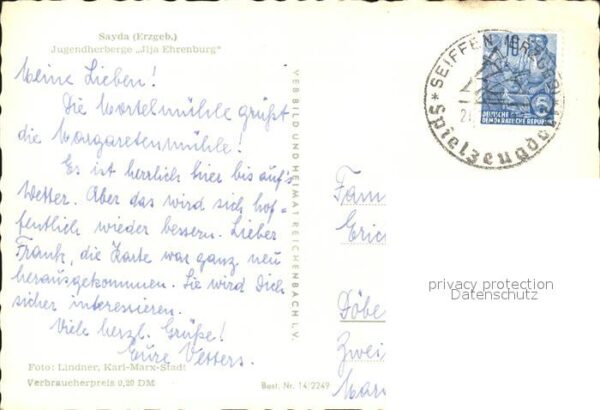 Sayda (Erzgeb.)
Jugendherberge „Ilja Ehrenburg"
Meine Lieben!
Die Mortelmühle grüßt
die Margaretenmühle!
Es ist herrlich hier bis auf's
Wetter. Aber das wird sich hof=
fentlich wieder bessern. Lieber
Frank, die Karte war ganz neu
herausgekommen. Sie wird Dich
sicher interessieren.
Viele herzl. Grüße!
Eure Vetters.
Foto: Lindner, Karl-Marx-Stadt
Verbraucherpreis 0,20 DM
VEB BILD UND HEIMAT REICHENBACH I. V.
Best. Nr. 14/2249
* SEIFFEN
Spielzeugdorf
DEUTSCHE
DEMOKRATISCHE REPUBLIK
Fam
Eric
Döbe
Zwei
Mar
privacy protection
Datenschutz